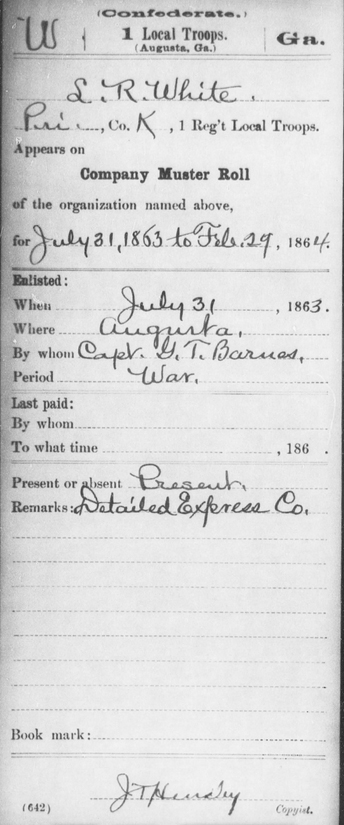 (Confederate.)
W | 1 Local Troops. | Ga.
(Augusta, Ga.)
L. R. White.
Pri., Co. K, 1 Reg't Local Troops.
Appears on
Company Muster Roll
of the organization named above,
for July 31, 1863 to Feb. 29, 1864.
Enlisted:
When July 31, 1863.
Where Augusta,
By whom Capt. G. T. Barnes,
Period War.
Last paid:
By whom
To what time , 186 .
Present or absent Present.
Remarks: Detailed Express Co.
Book mark:
J T Hensley
(642) Copyist.